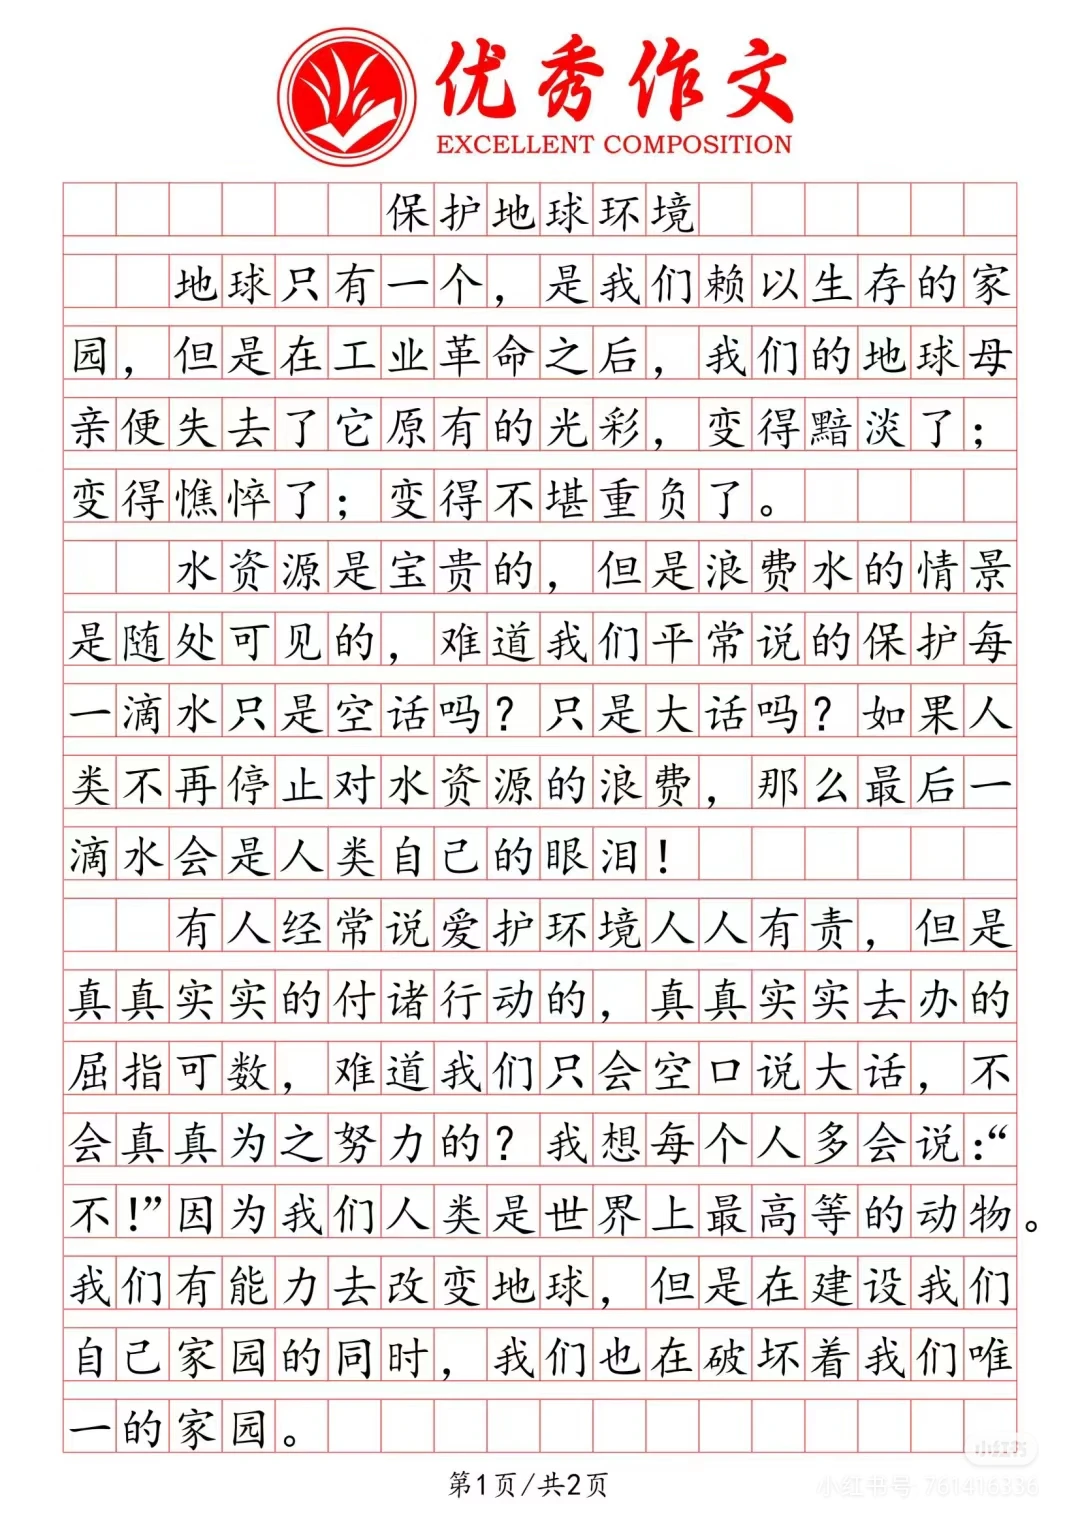 优秀作文
EXCELLENT COMPOSITION
保护地球环境
地球只有一个，是我们赖以生存的家
园，但是在工业革命之后，我们的地球母
亲便失去了它原有的光彩，变得黯淡了；
变得憔悴了；变得不堪重负了。
水资源是宝贵的，但是浪费水的情景
是随处可见的，难道我们平常说的保护每
一滴水只是空话吗？只是大话吗？如果人
类不再停止对水资源的浪费，那么最后一
滴水会是人类自己的眼泪！
有人经常说爱护环境人人有责，但是
真真实实的付诸行动的，真真实实去办的
屈指可数，难道我们只会空口说大话，不
会真真为之努力的？我想每个人多会说：“
不！”因为我们人类是世界上最高等的动物。
我们有能力去改变地球，但是在建设我们
自己家园的同时，我们也在破坏着我们唯
一的家园。
第1页/共2页
小红书
小红书号 761416336